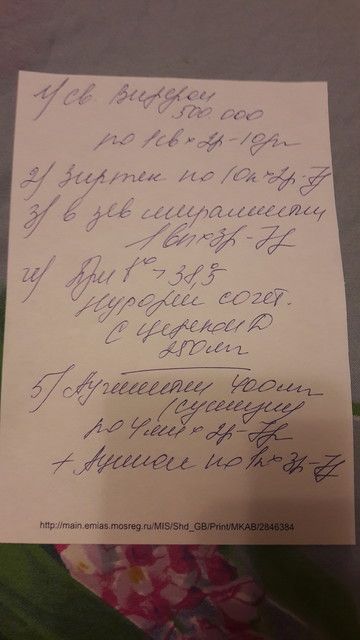 1) св. Виферон
500.000
по 1св × 2р - 10дн
2) Зиртек по 10к × 2р - 7д
3) в зев мирамистин
1вп × 3р - 7д
4) При t° > 38,5°
Нурофен сочет.
с цефекон Д
250мг
5) Аугментин 400мг
(суспензия)
по 4мл × 2р - 7д
+ Аципол по 1к × 3р - 7д
http://main.emias.mosreg.ru/MIS/Shd_GB/Print/MKAB/2846384